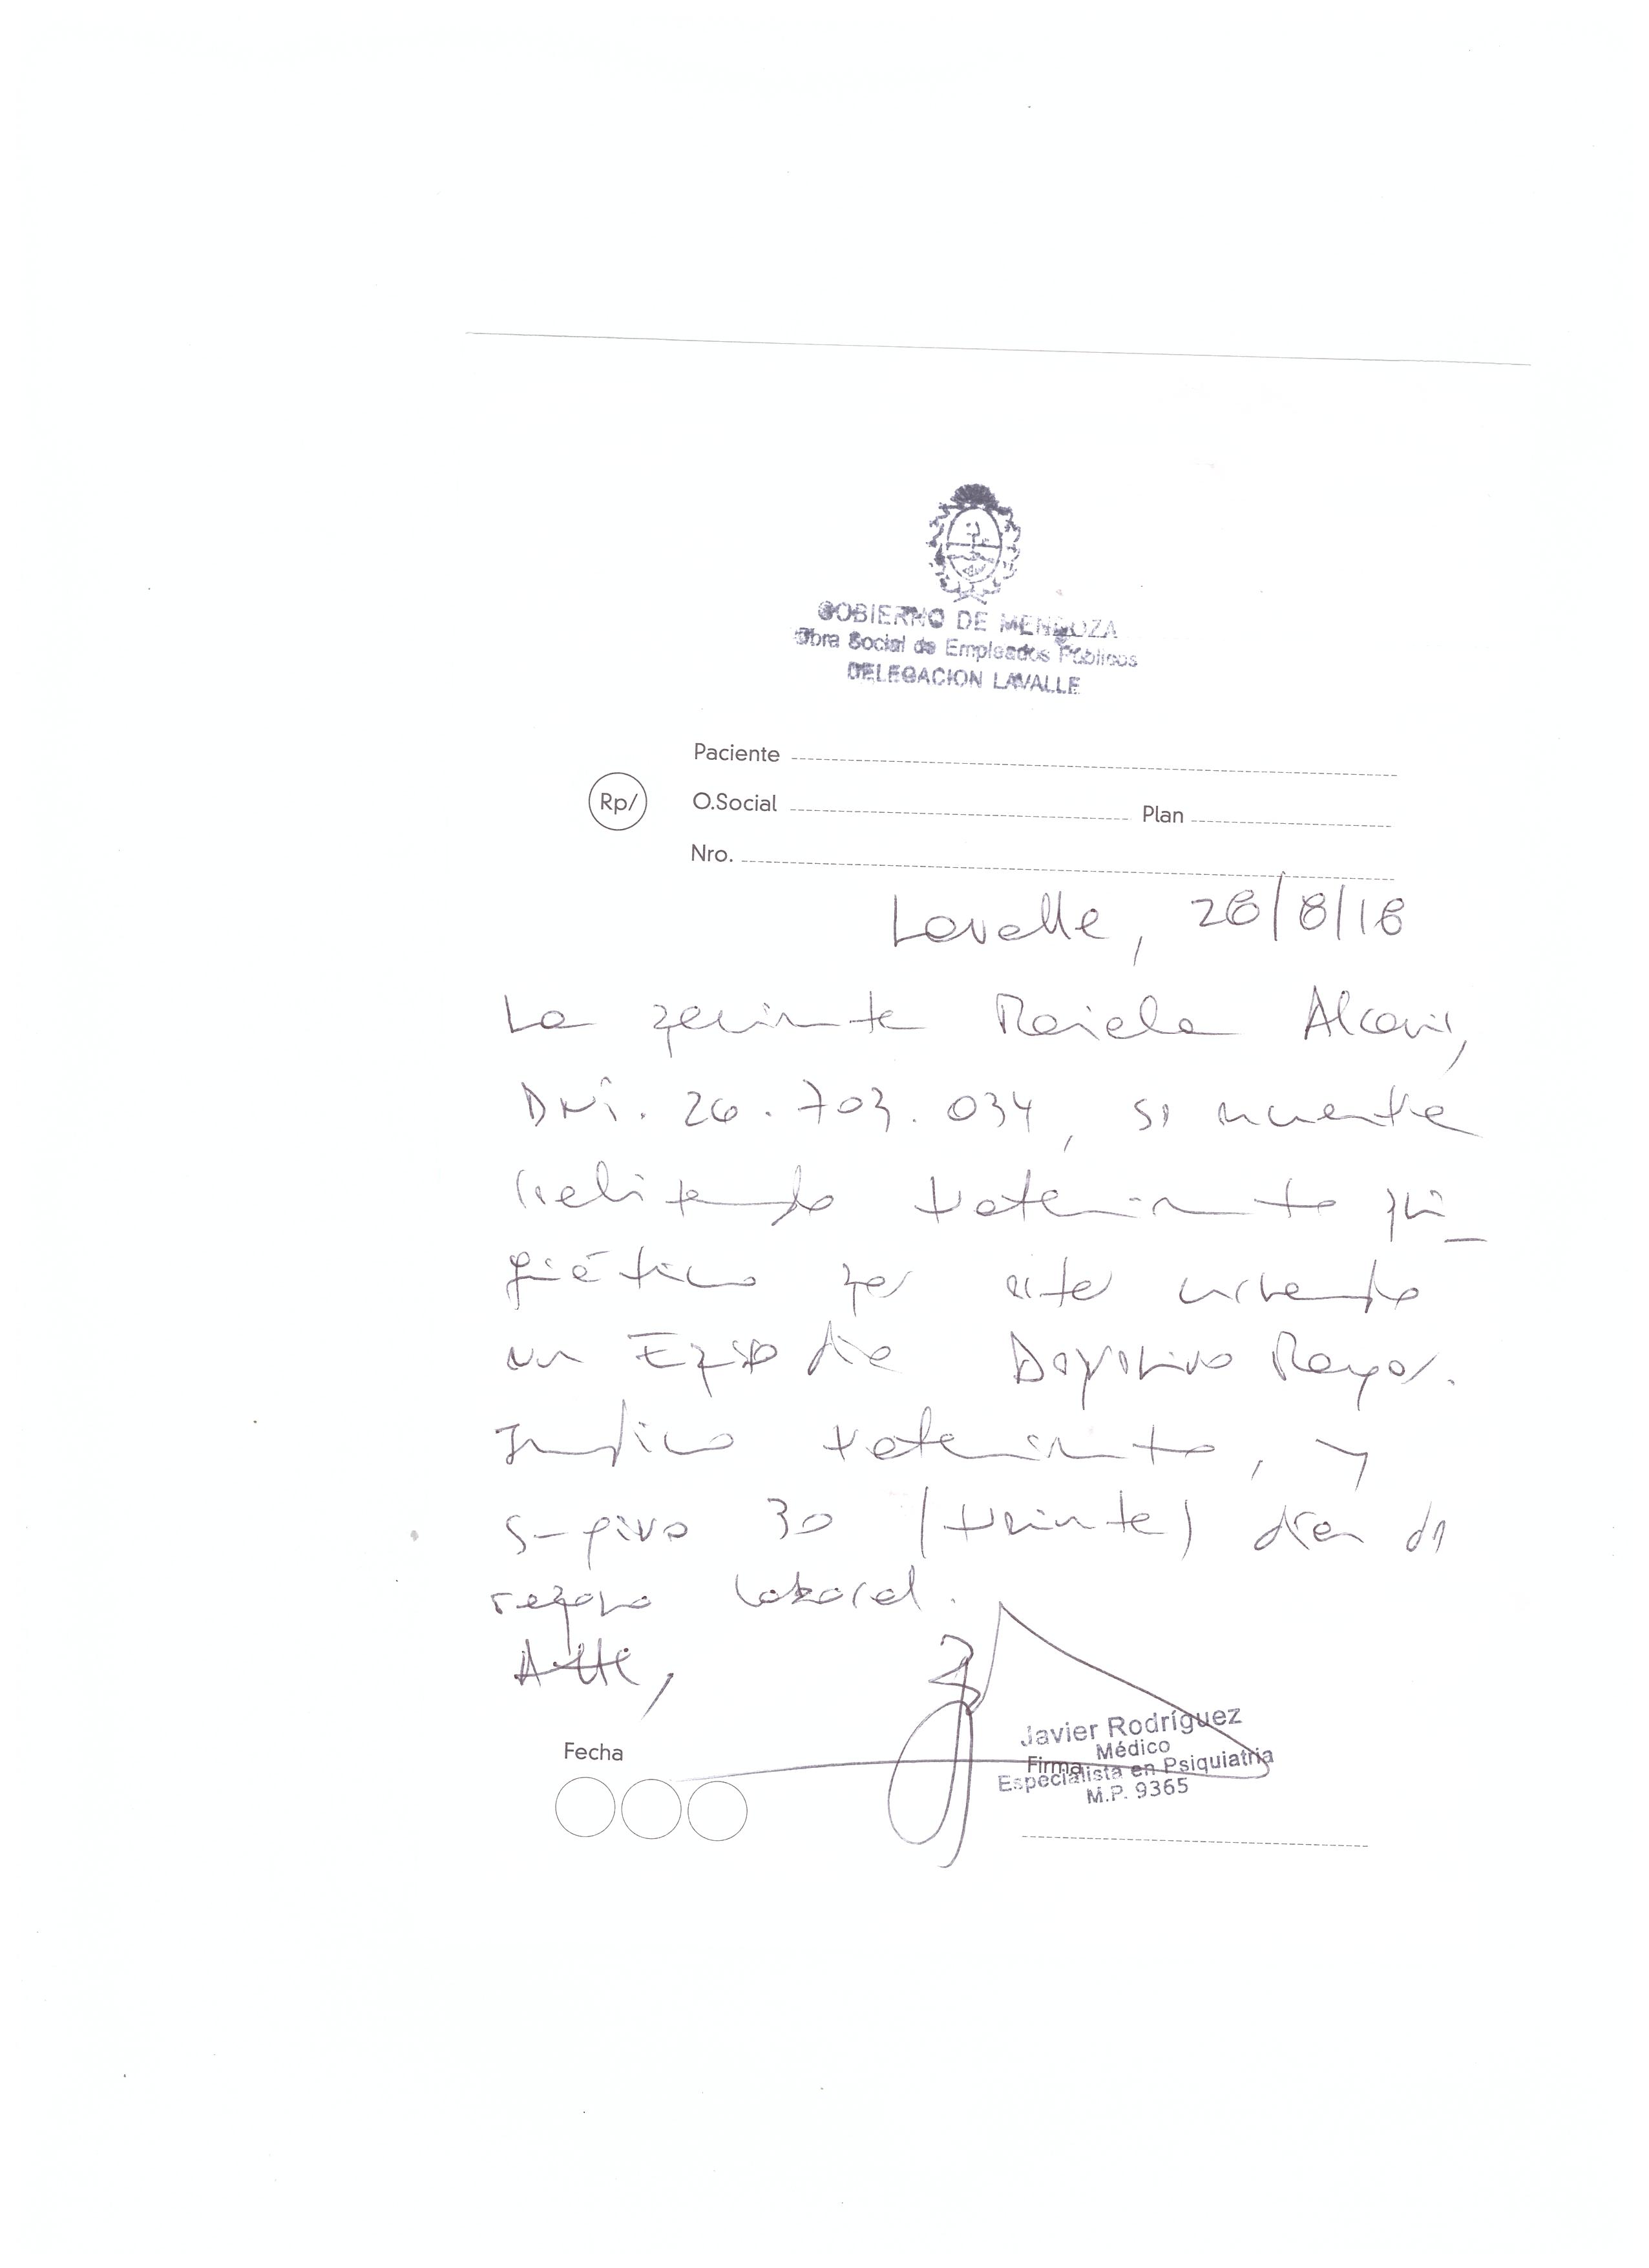 GOBIERNO DE MENDOZA
Obra Social de Empleados Públicos
DELEGACION LAVALLE
Paciente
Rp/
O.Social Plan
Nro.
Lavalle, 28/8/18
La paciente Mariela
DNI. 26.703.034, se encuentra
realizando tratamiento psi-
quiátrico por estar cursando
un Episodio Depresivo Mayor.
Indico tratamiento, y
sugiero 30 (treinta) días de
reposo laboral.
Atte,
Javier Rodríguez
Médico
Fecha
Firma
Especialista en Psiquiatria
M.P. 9365